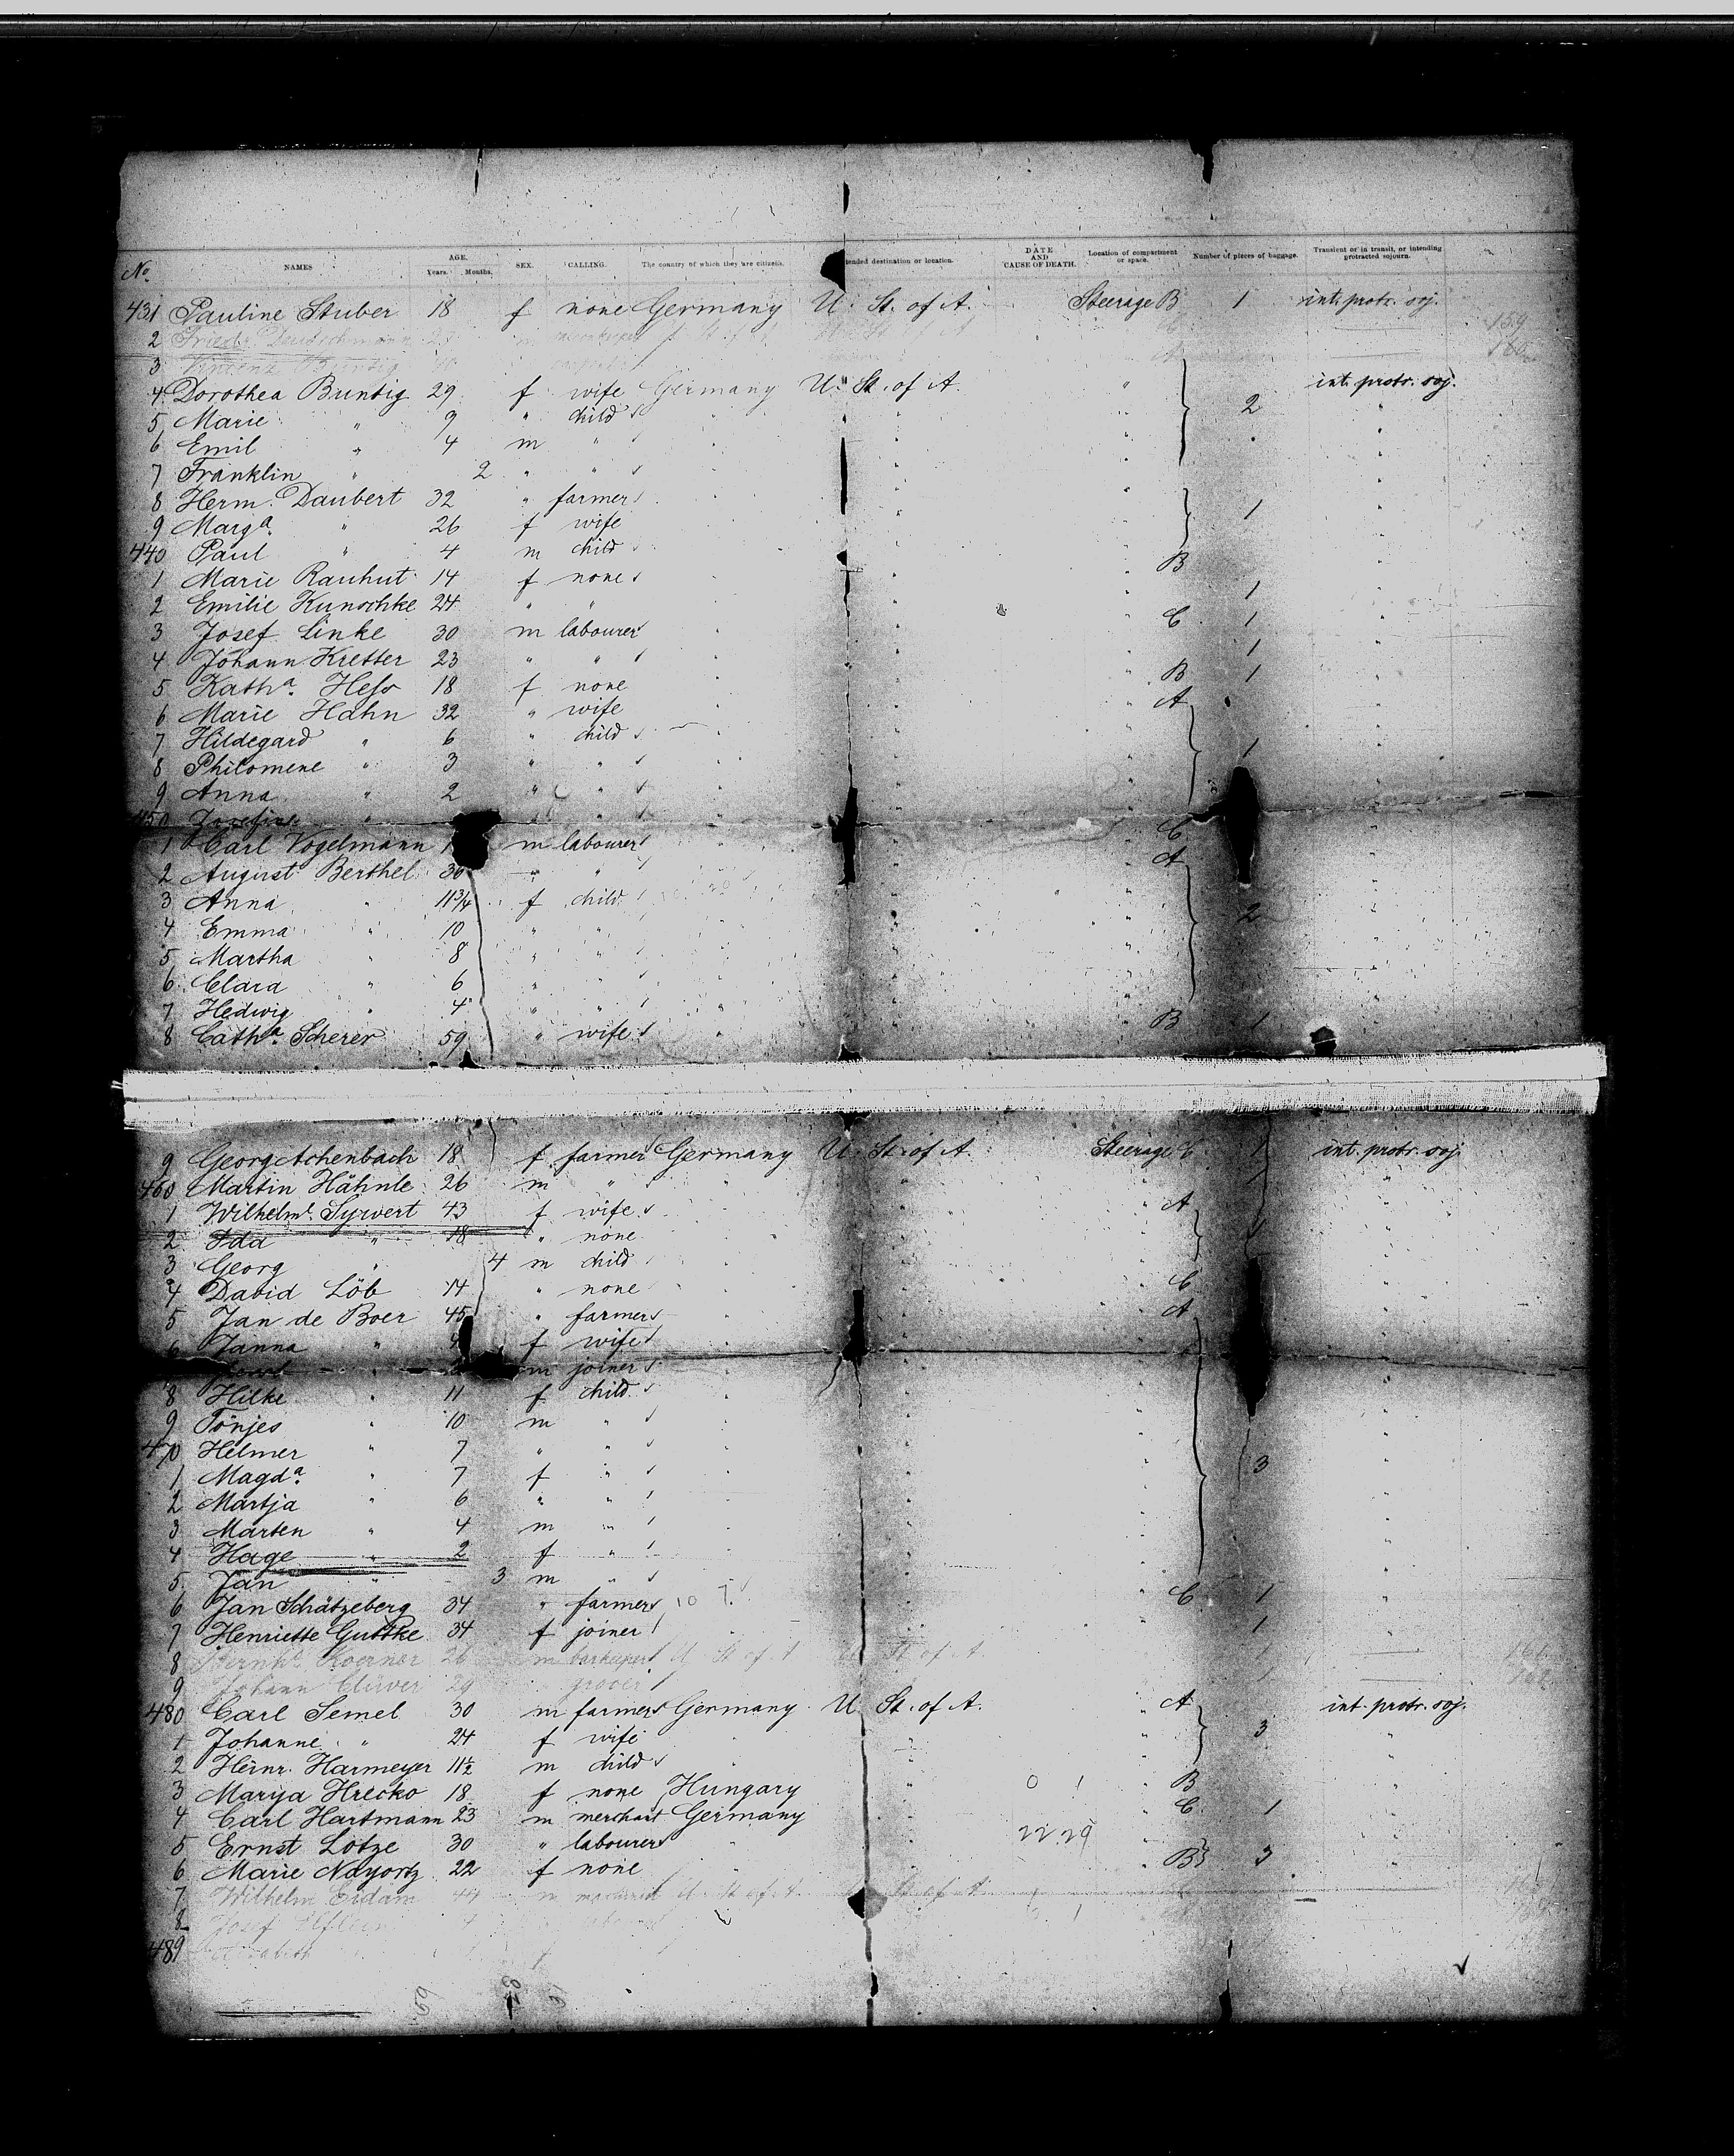 No. NAMES AGE. Years. Months. SEX. CALLING. The country of which they are citizens. tended destination or location. DATE AND CAUSE OF DEATH. Location of compartment or space. Number of pieces of baggage. Transient or in transit, or intending protracted sojourn.
431 Pauline Stuber 18 f none Germany U. St. of A. Steerage B 1 int. protr. soj.
2 Friedr. m 159
3 Vincenz 160
4 Dorothea Buntig 29 f wife Germany U. St. of A. " int. protr. soj.
5 Marie " 9 " child " " " 2 "
6 Emil " 4 m " " " " "
7 Franklin " 2 " " " " " "
8 Herm. Daubert 32 " farmer " " " "
9 Marga. " 26 f wife " " " 1 "
440 Paul " 4 m child " " " "
1 Marie Rauhut 14 f none " " " B 1 "
2 Emilie Kunschke 24 " " " " " 1 "
3 Josef Linke 30 m labourer " " " C 1 "
4 Johann Kretter 23 " " " " " 1 "
5 Katha. Hess 18 f none " " " B 1 "
6 Marie Hahn 32 " wife " " " A "
7 Hildegard " 6 " child " " " 1 "
8 Philomene " 3 " " " " " "
9 Anna " 2 " " " " " "
450 Josefine " " " " " " "
1 Carl Vogelmann m labourer " " " C "
2 August Berthel 36 " " " " " A "
3 Anna " 11 3/4 f child " " " 2 "
4 Emma " 10 " " " " " "
5 Martha " 8 " " " " " "
6 Clara " 6 " " " " " "
7 Hedwig " 4 " " " " " "
8 Catha. Scherer 59 " wife " " " B 1 "
9 Georg Achenbach 18 f farmer Germany U. St. of A. Steerage C 1 int. protr. soj.
460 Martin Hähnle 26 m " " " " "
1 Wilhelme. Syrvert 43 f wife " " " A "
2 Ida " 18 " none " " " "
3 Georg " 4 m child " " " "
4 David Löb 14 " none " " " C "
5 Jan de Boer 45 " farmer " " " A "
6 Janna " f wife " " " "
m joiner " "
8 Hilke " 11 f child " " " "
9 Tönjes " 10 m " " " " "
470 Helmer " 7 " " " " " "
1 Magda. " 7 f " " " " 3 "
2 Martja " 6 " " " " " "
3 Marten " 4 m " " " " "
4 Hage " 2 f " " " " "
5 Jan " 3 m " " " " "
6 Jan Schätzeberg 34 " farmer " " " C 1 "
7 Henriette Guttke 34 f joiner " " " 1 "
8 Bernhd. Koerner 26 m barkeeper U. St. of A. U. St. of A. 1 161
9 Johann Clüver 29 " grocer 1 162
480 Carl Semel 30 m farmer Germany U. St. of A. " A int. protr. soj.
1 Johanne " 24 f wife " " " 3 "
2 Heinr. Harmeyer 11 1/2 m child " " " "
3 Marya Hrecko 18 f none Hungary " " B "
4 Carl Hartmann 23 m merchant Germany " " C 1 "
5 Ernst Lotze 30 " labourer " " " "
6 Marie Nayortz 22 f none " " " B 3 "
7 Wilhelm Eidam 44 m U. St. of A. U. St. of A.
8 Josef
489